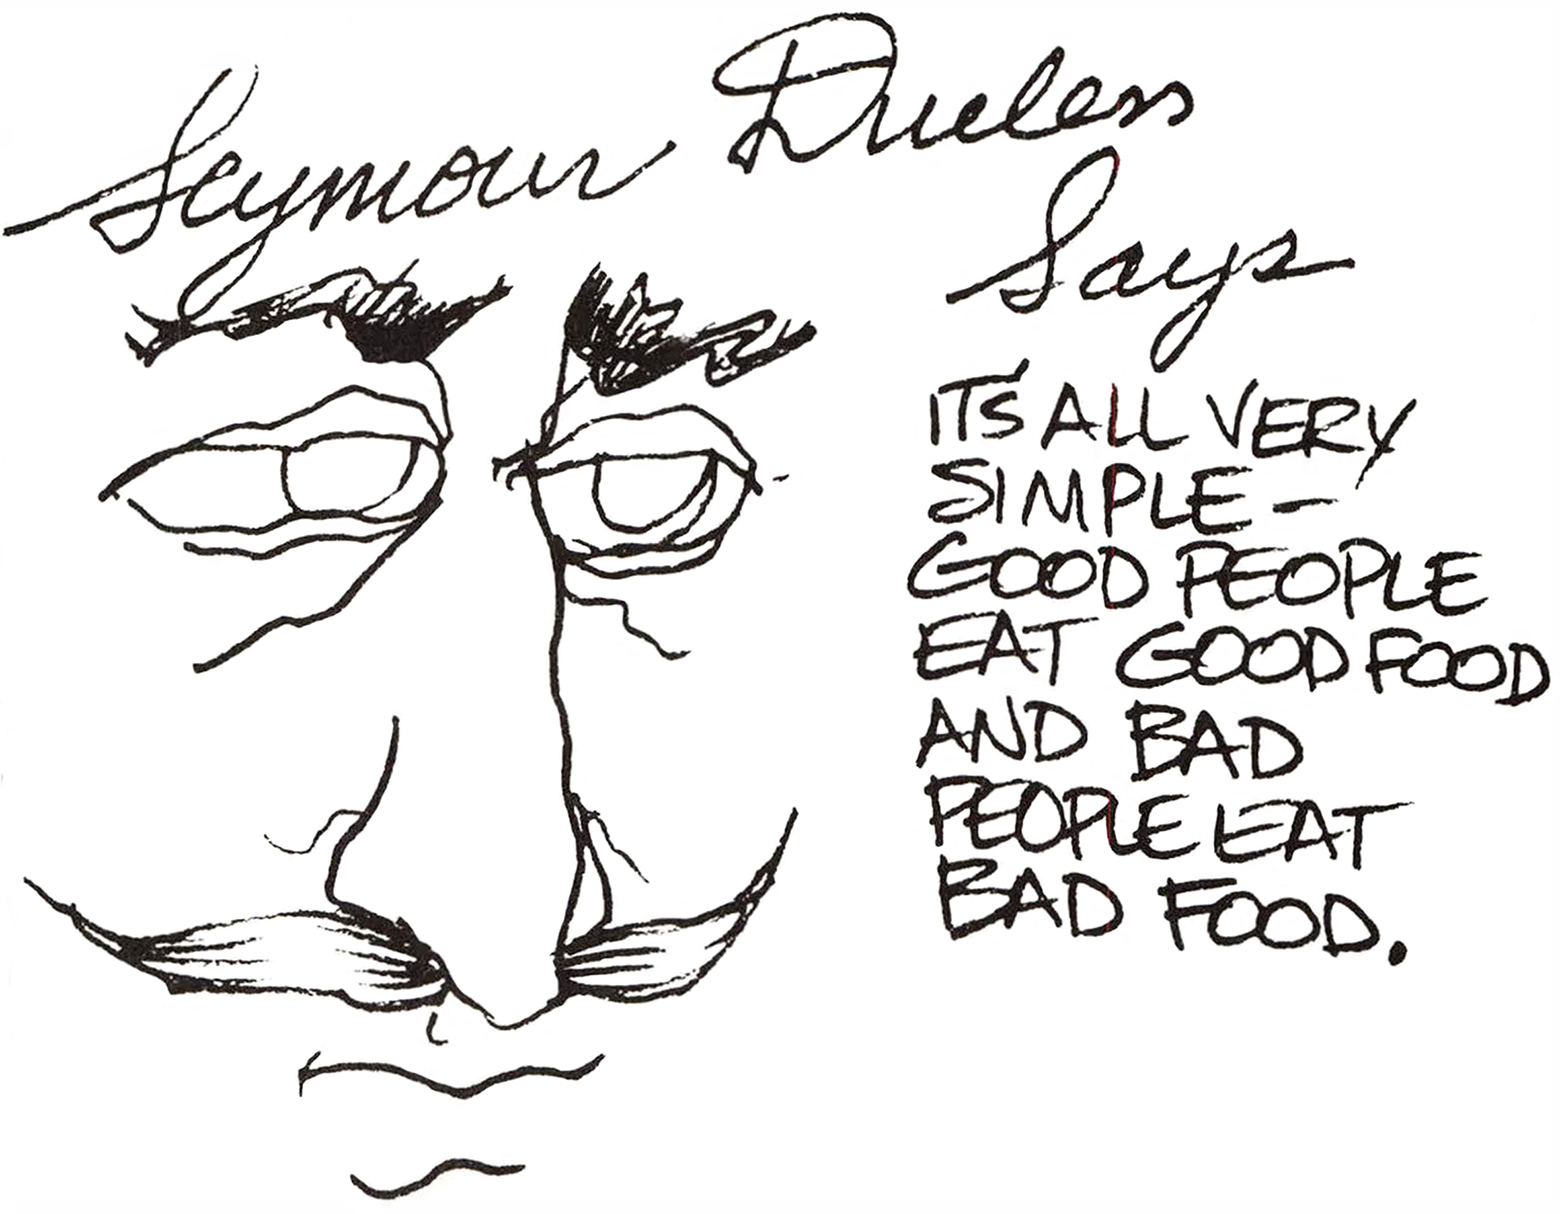 Seymour Dueless
Says
IT'S ALL VERY
SIMPLE —
GOOD PEOPLE
EAT GOOD FOOD
AND BAD
PEOPLE EAT
BAD FOOD.